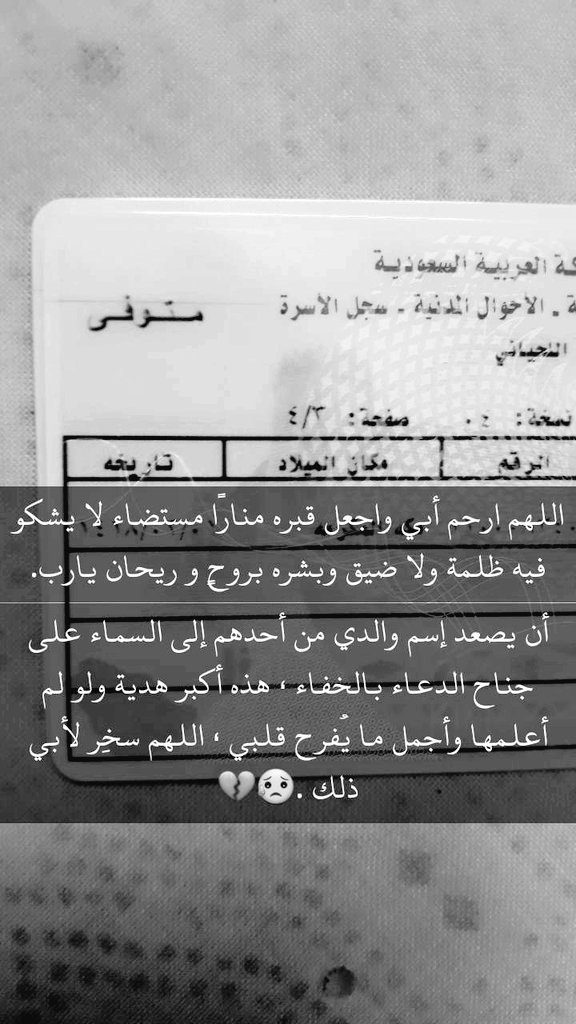 العربية السعودية
الأحوال المدنية - سجل الأسرة
متوفى
اللحياني
نسخة: ٠٤ صفحة: ٤/٣
الرقم مكان الميلاد تاريخه
اللهم إرحم أبي واجعل قبره منارًا مستضاء لا يشكو
فيه ظلمة ولا ضيق وبشره بروحٍ و ريحان يارب.
أن يصعد إسم والدي من أحدهم إلى السماء على
جناح الدعاء بالخفاء ، هذه أكبر هدية ولو لم
أعلمها وأجمل ما يُفرح قلبي ، اللهم سخِر لأبي
ذلك .😥💔